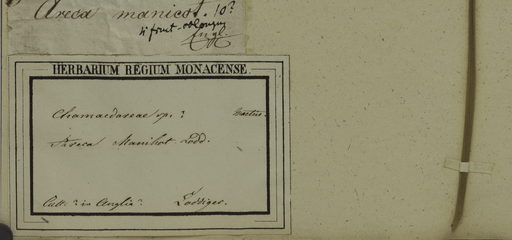 Areca manicot. 10?
if fruit oblong
Engl.
HERBARIUM REGIUM MONACENSE.
Chamaedoreae sp. ? Martius.
Areca Manihot Lodd.
Cult. ? in Anglia ? Loddiges.